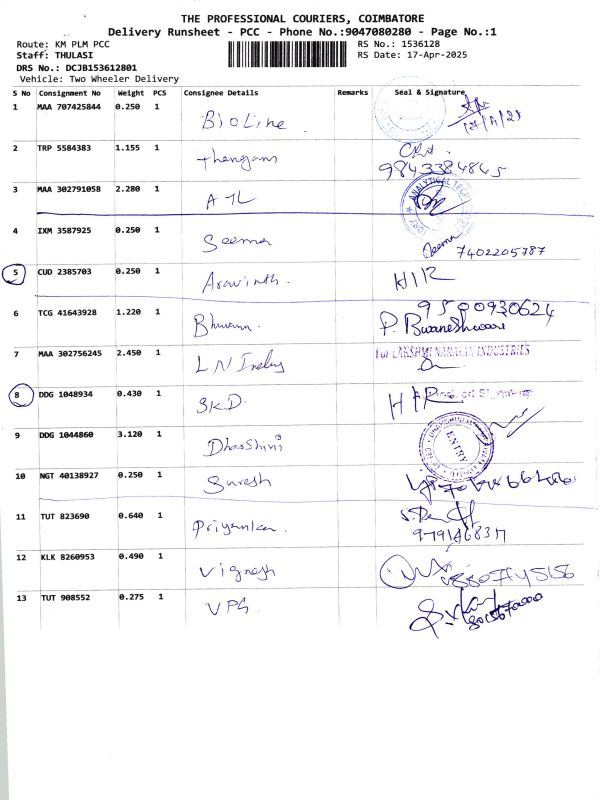 THE PROFESSIONAL COURIERS, COIMBATORE
Delivery Runsheet - PCC - Phone No.:9047080280 - Page No.:1
Route: KM PLM PCC RS No.: 1536128
Staff: THULASI RS Date: 17-Apr-2025
DRS No.: DCJB153612801
Vehicle: Two Wheeler Delivery
S No Consignment No Weight PCS Consignee Details Remarks Seal & Signature
1 MAA 707425844 0.250 1 BioLine
2 TRP 5584383 1.155 1 thangam 9843384845
3 MAA 302791058 2.280 1 ATL ANALYTICAL
4 IXM 3587925 0.250 1 Seema Seema 7402205787
5 CUD 2385703 0.250 1 Aravinth. HIR
6 TCG 41643928 1.220 1 Bhuvana. 9500930624
P. Bwaneshwari
7 MAA 302756245 2.450 1 LN For LAKSHMI NARAYAN INDUSTRIES
8 DDG 1048934 0.430 1 SKD. HIR
9 DDG 1044860 3.120 1 Dharshini ENTRY
10 NGT 40138927 0.250 1 Suresh
11 TUT 823690 0.640 1 Priyanka.
12 KLK 8260953 0.490 1 Vignesh
13 TUT 908552 0.275 1 VPG.